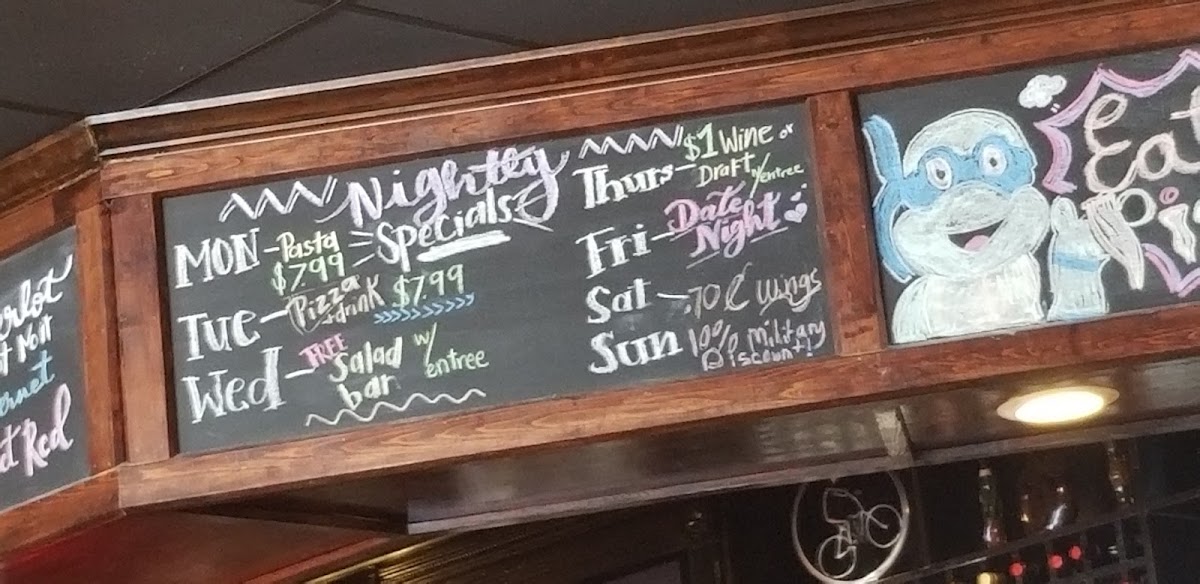 erlot
t Noit
ernet
t Red
Nightly
Specials
MON - Pasta
$7.99
TUE - Pizza
+ drink $7.99
Wed - FREE
Salad
bar
w/
entree
Thurs - $1 Wine or
Draft w/entree
Fri - Date
Night
Sat - .70 ¢ wings
Sun 10% military
Discount!
Eat
Pi